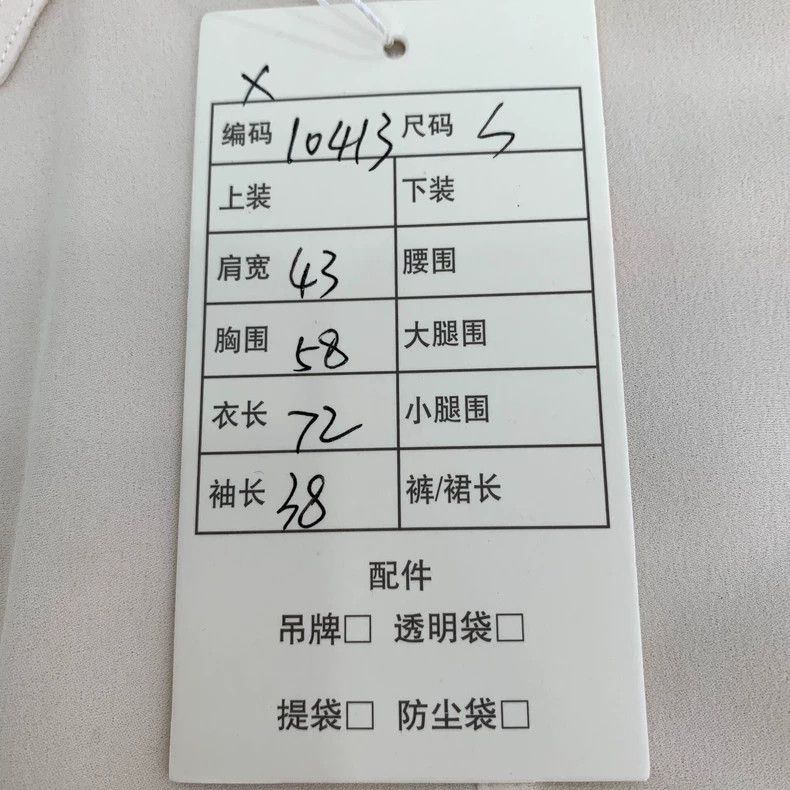 X
编码 10413 尺码 S
上装 下装
肩宽 43 腰围
胸围 58 大腿围
衣长 72 小腿围
袖长 38 裤/裙长
配件
吊牌□ 透明袋□
提袋□ 防尘袋□